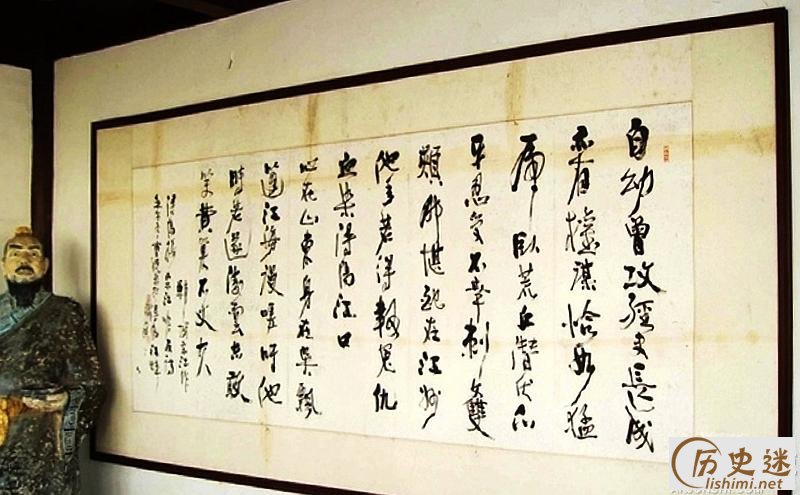 自幼曾攻經史長成
亦有權謀恰如猛
虎臥荒丘潛伏爪
牙忍受不幸刺文雙
頰那堪配在江州
他年若得報冤仇
血染潯陽江口
心在山東身在吳飄
蓬江海謾嗟吁他
時若遂凌雲志敢
笑黃巢不丈夫
宋江作
潯陽樓宋江吟反詩
历史迷
lishimi.net